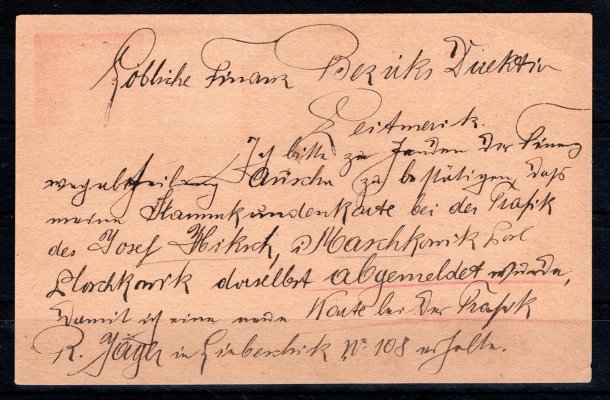 Löbliche Finanz Bezirks Direktion
Leitmeritz.
Ich bitte zu Handen der Finanz
wegabtheilung Auscha zu bestätigen, daß
meine Stammkundenkarte bei der Trafik
des Josef Hiksch, i Maschkowik Post
Ploschkowik daselbst abgemeldet wurde,
damit ich eine neue Karte bei der Trafik
R. Jäger in Liebeschik No 108 erhalte.